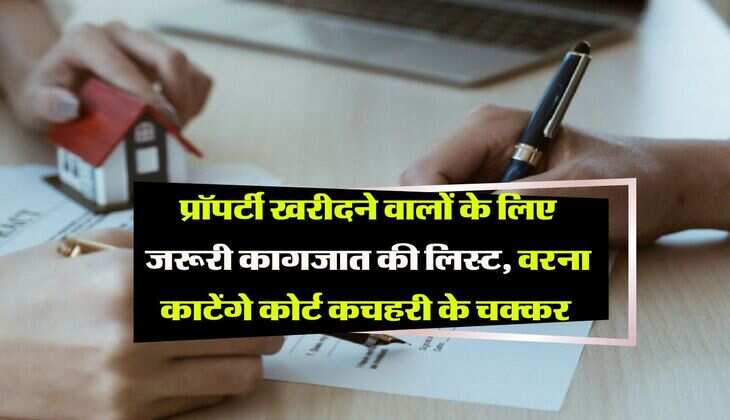 प्रॉपर्टी खरीदने वालों के लिए
जरूरी कागजात की लिस्ट, वरना
काटेंगे कोर्ट कचहरी के चक्कर